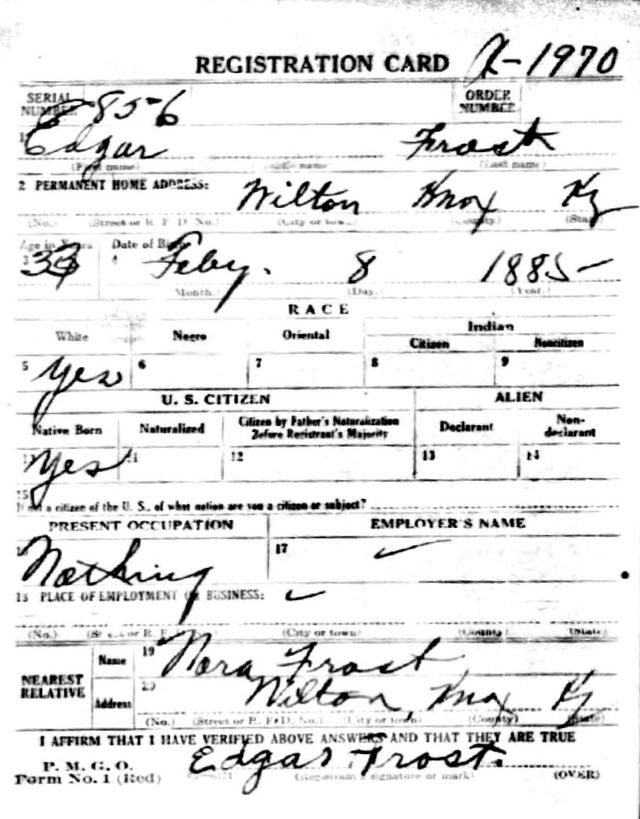 REGISTRATION CARD A-1970
SERIAL NUMBER 856 ORDER NUMBER
Edgar Frost
(First name) (Middle name) (Last name)
2 PERMANENT HOME ADDRESS: Wilton Knox Ky
(No.) (Street or R. F. D. No.) (City or town) (County) (State)
Age in Years Date of Birth
3 33 4 Feby. 8 1885
(Month.) (Day.) (Year.)
RACE
White Negro Oriental Indian
Citizen Noncitizen
5 Yes 6 7 8 9
U. S. CITIZEN ALIEN
Native Born Naturalized Citizen by Father's Naturalization Before Registrant's Majority Declarant Non-declarant
Yes 11 12 13 14
15
If not a citizen of the U. S., of what nation are you a citizen or subject?
PRESENT OCCUPATION EMPLOYER'S NAME
16 Nothing 17 ✓
18 PLACE OF EMPLOYMENT OR BUSINESS: ✓
(No.) (Street or R. F. D. No.) (City or town) (County) (State)
NEAREST RELATIVE Name 19 Nora Frost
Address 20 Wilton, Knox Ky
(No.) (Street or R. F. D. No.) (City or town) (County) (State)
I AFFIRM THAT I HAVE VERIFIED ABOVE ANSWERS AND THAT THEY ARE TRUE
P. M. G. O.
Form No. 1 (Red) Edgar Frost.
(Registrant's signature or mark) (OVER)